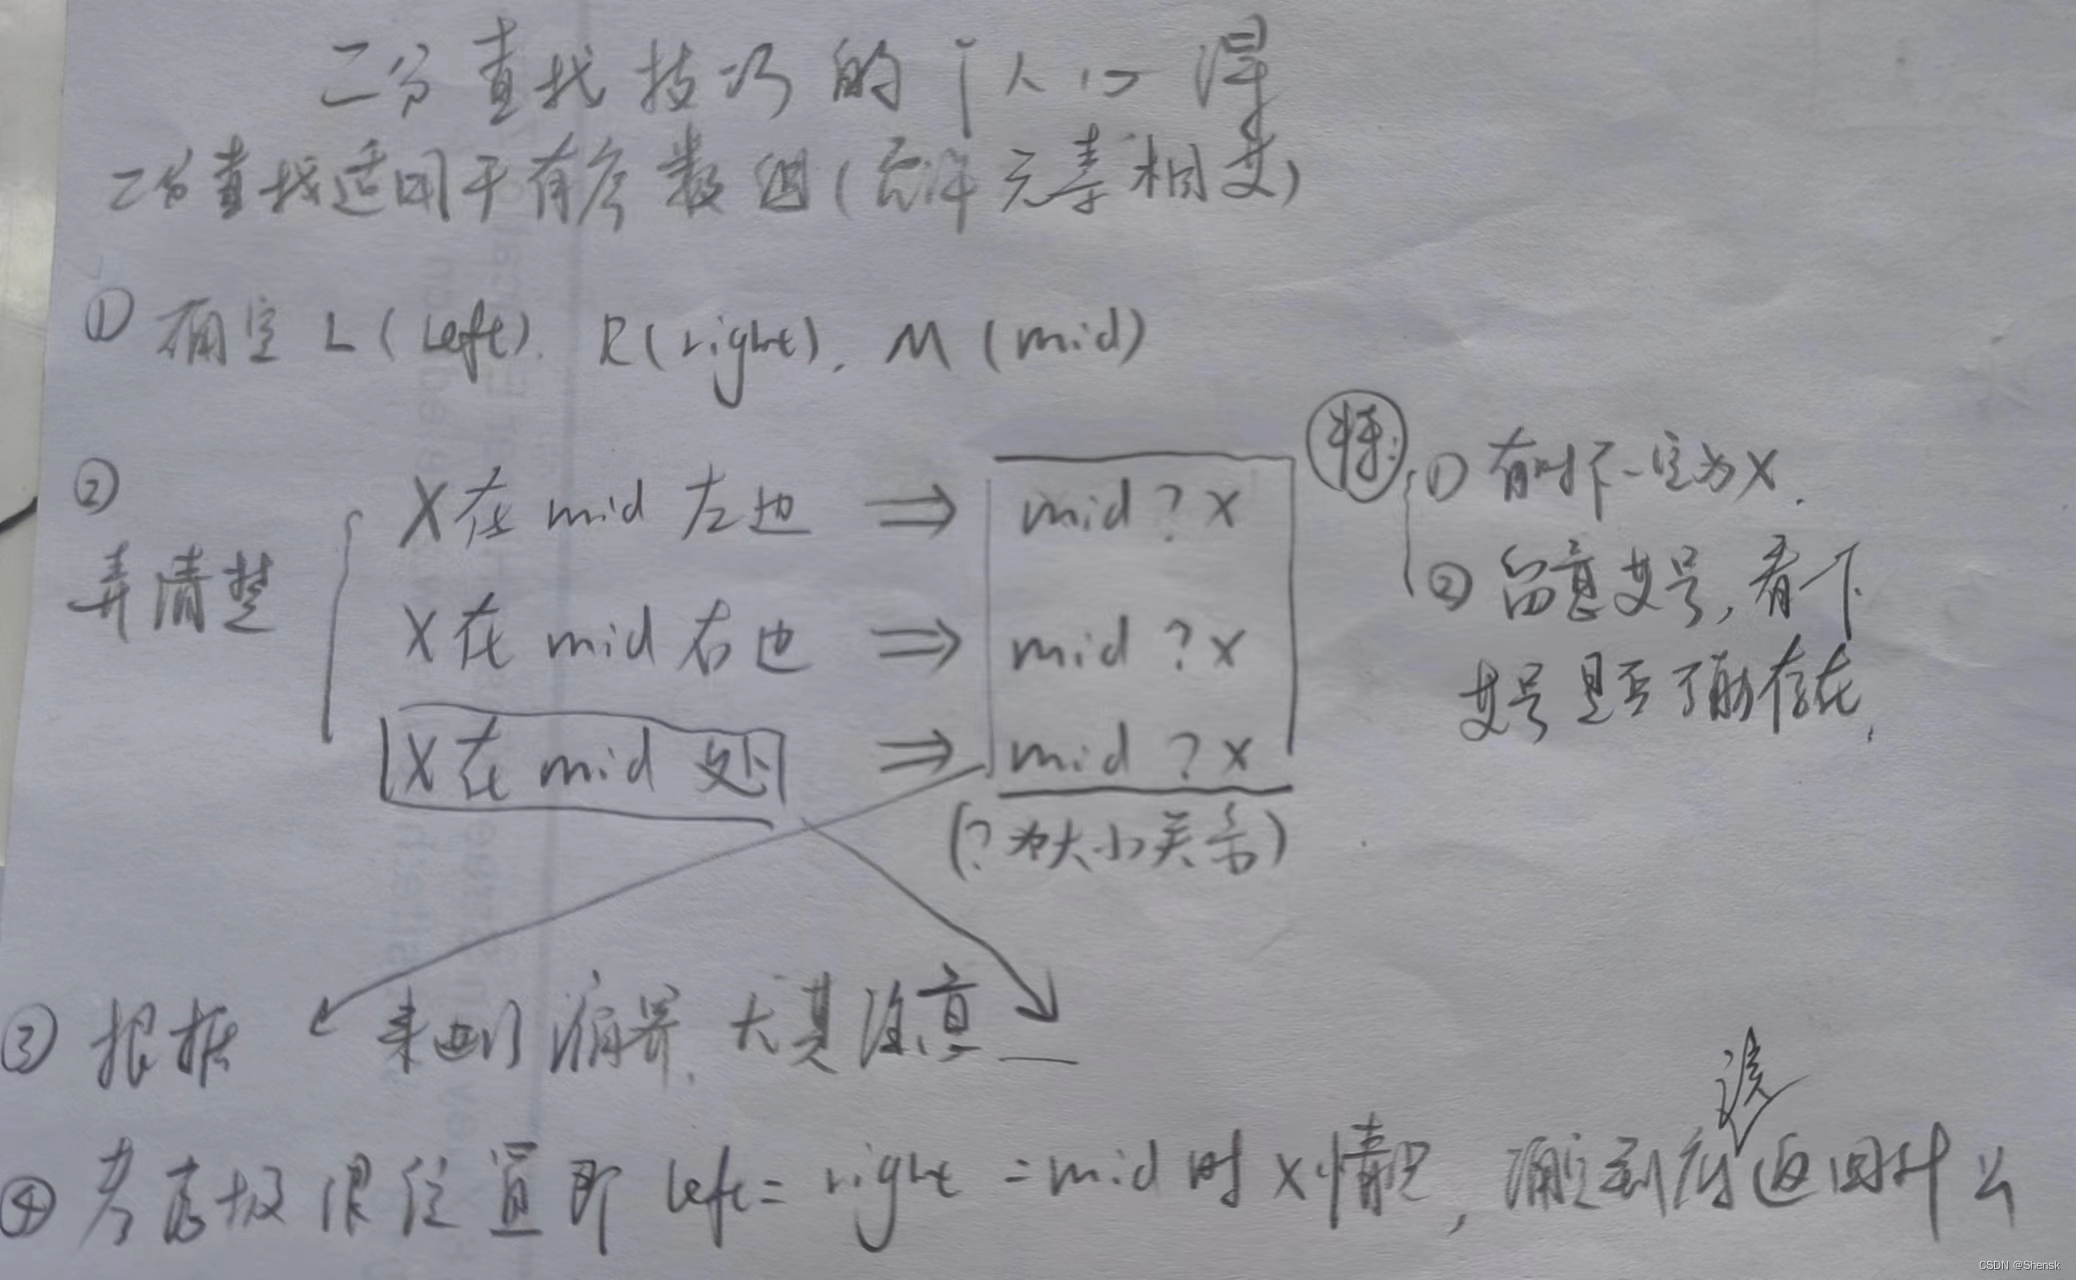 二分查找技巧的个人心得
二分查找适用于有序数组(允许元素相等)
① 确定 L(left). R(right). M(mid)
②
弄清楚
X在 mid 左边 ⇒ mid ? x
X在 mid 右边 ⇒ mid ? x
X在 mid 处 ⇒ mid ? x
(? 为大小关系)
特:
① 有时不一定为X.
② 留意等号,看下
等号是否了解存在.
③ 根据 来进行 尤其注意
④ 考虑极限位置即 left = right = mid 时 X情况, 确定到底该返回什么
CSDN @Shensk